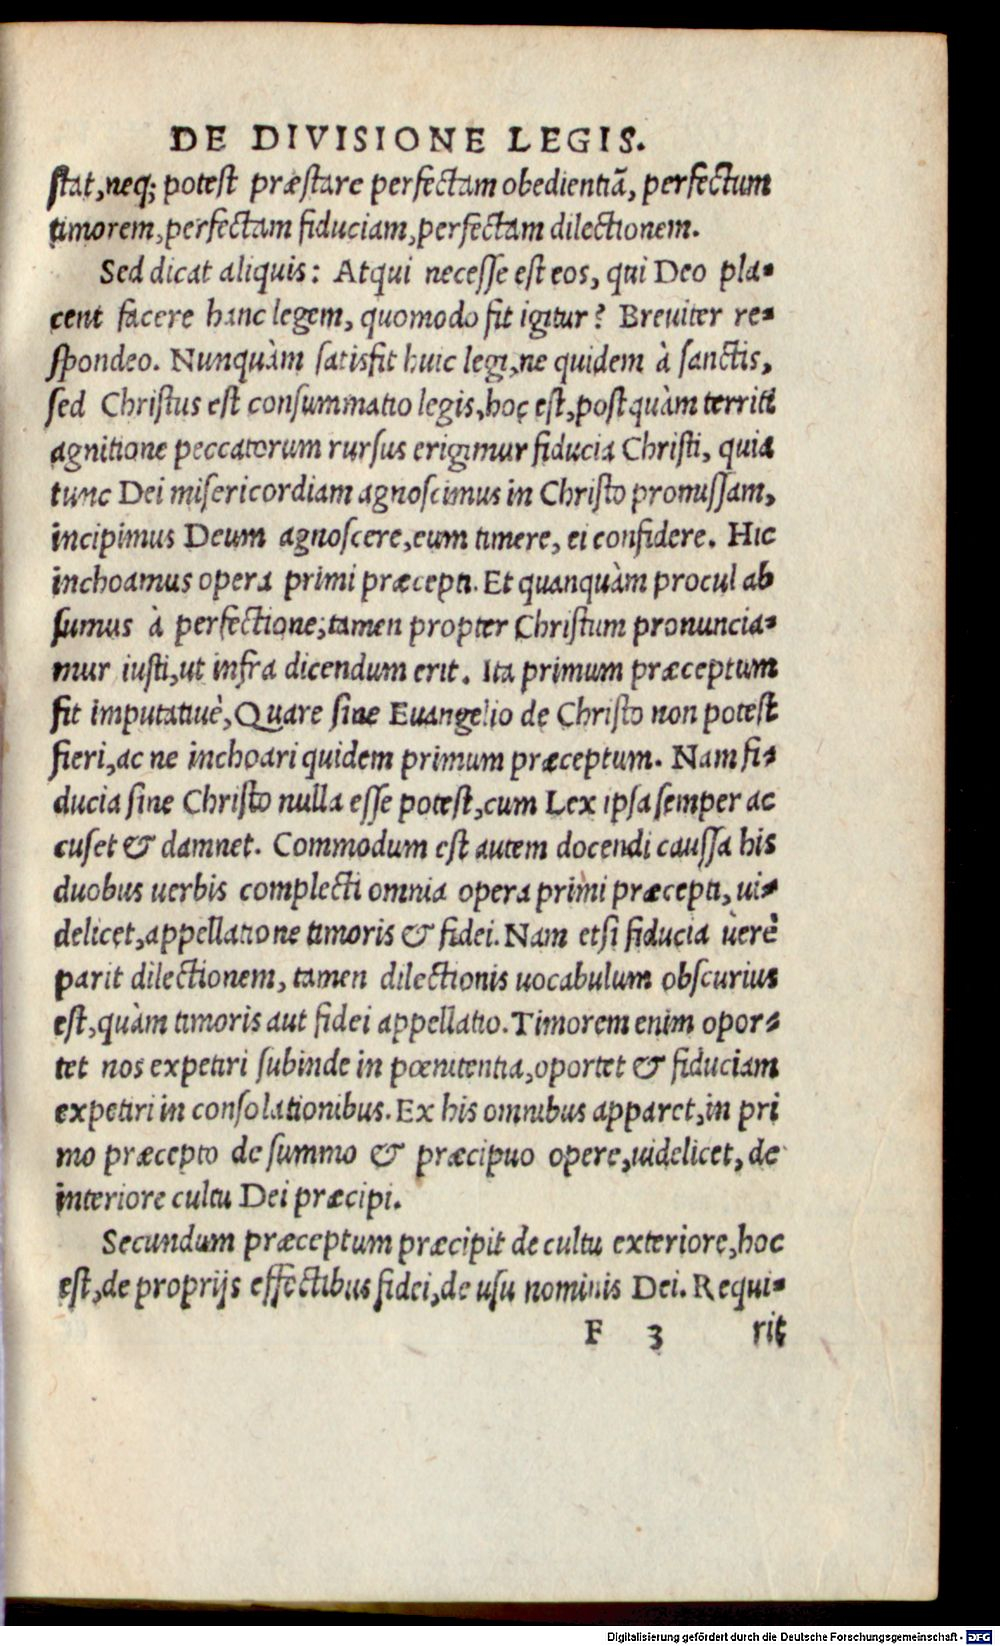 DE DIVISIONE LEGIS.
stat, neq; potest præstare perfectam obedientiã, perfectum
timorem, perfectam fiduciam, perfectam dilectionem.
Sed dicat aliquis: Atqui necesse est eos, qui Deo pla-
cent facere hanc legem, quomodo fit igitur? Breuiter re-
spondeo. Nunquàm satisfit huic legi, ne quidem à sanctis,
sed Christus est consummatio legis, hoc est, postquàm territi
agnitione peccatorum rursus erigimur fiducia Christi, quia
tunc Dei misericordiam agnoscimus in Christo promissam,
incipimus Deum agnoscere, eum timere, ei confidere. Hic
inchoamus opera primi præcepti. Et quanquàm procul ab
sumus à perfectione; tamen propter Christum pronuncia-
mur iusti, ut infra dicendum erit. Ita primum præceptum
fit imputatiuè, Quare sine Euangelio de Christo non potest
fieri, ac ne inchoari quidem primum præceptum. Nam fi-
ducia sine Christo nulla esse potest, cum Lex ipsa semper ac
cuset & damnet. Commodum est autem docendi caussa his
duobus uerbis complecti omnia opera primi præcepti, ui-
delicet, appellatione timoris & fidei. Nam etsi fiducia uerè
parit dilectionem, tamen dilectionis uocabulum obscurius
est, quàm timoris aut fidei appellatio. Timorem enim opor-
tet nos expetiri subinde in pœnitentia, oportet & fiduciam
expetiri in consolationibus. Ex his omnibus apparet, in pri
mo præcepto de summo & præcipuo opere, uidelicet, de
interiore cultu Dei præcipi.
Secundum præceptum præcipit de cultu exteriore, hoc
est, de proprijs effectibus fidei, de usu nominis Dei. Requi-
F 3 rit
Digitalisierung gefördert durch die Deutsche Forschungsgemeinschaft - DFG